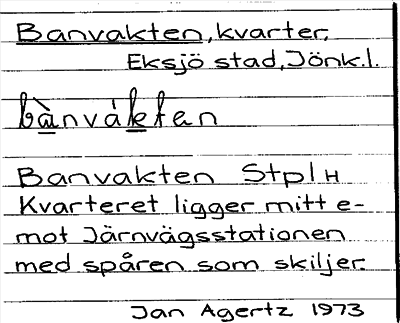 Banvakten, kvarter,
Eksjö stad, Jönk.l.
bànvák̲tan
Banvakten Stpl H
Kvarteret ligger mitt e-
mot Järnvägsstationen
med spåren som skiljer.
Jan Agertz 1973